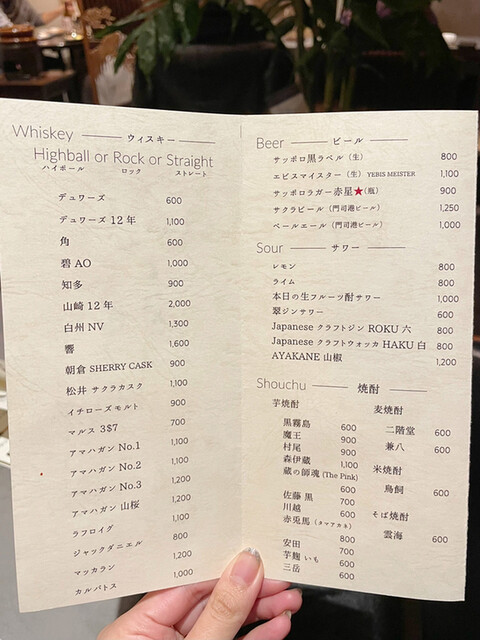 Whiskey ウィスキー
Highball or Rock or Straight
ハイボール ロック ストレート
デュワーズ 600
デュワーズ 12年 1,100
角 600
碧 AO 1,000
知多 900
山崎 12年 2,000
白州 NV 1,300
響 1,600
朝倉 SHERRY CASK 900
松井 サクラカスク 1,100
イチローズモルト 900
マルス 3&7 700
アマハガン No.1 1,100
アマハガン No.2 1,100
アマハガン No.3 1,200
アマハガン 山桜 1,200
ラフロイグ 1,100
ジャックダニエル 800
マッカラン 1,200
カルバトス 1,000
Beer ビール
サッポロ黒ラベル（生） 800
エビスマイスター（生）YEBIS MEISTER 1,100
サッポロラガー赤星★（瓶） 900
サクラビール（門司港ビール） 1,250
ペールエール（門司港ビール） 1,000
Sour サワー
レモン 800
ライム 800
本日の生フルーツ酎サワー 1,000
翠ジンサワー 600
Japanese クラフトジン ROKU 六 800
Japanese クラフトウォッカ HAKU 白 800
AYAKANE 山椒 1,200
Shouchu 焼酎
芋焼酎
黒霧島 600
魔王 900
村尾 900
森伊蔵 1,100
蔵の師魂 (The Pink) 600
佐藤 黒 600
川越 700
赤兎馬（タマアカネ） 600
安田 800
芋麹 いも 700
三岳 600
麦焼酎
二階堂 600
兼八 600
米焼酎
鳥飼 600
そば焼酎
雲海 600